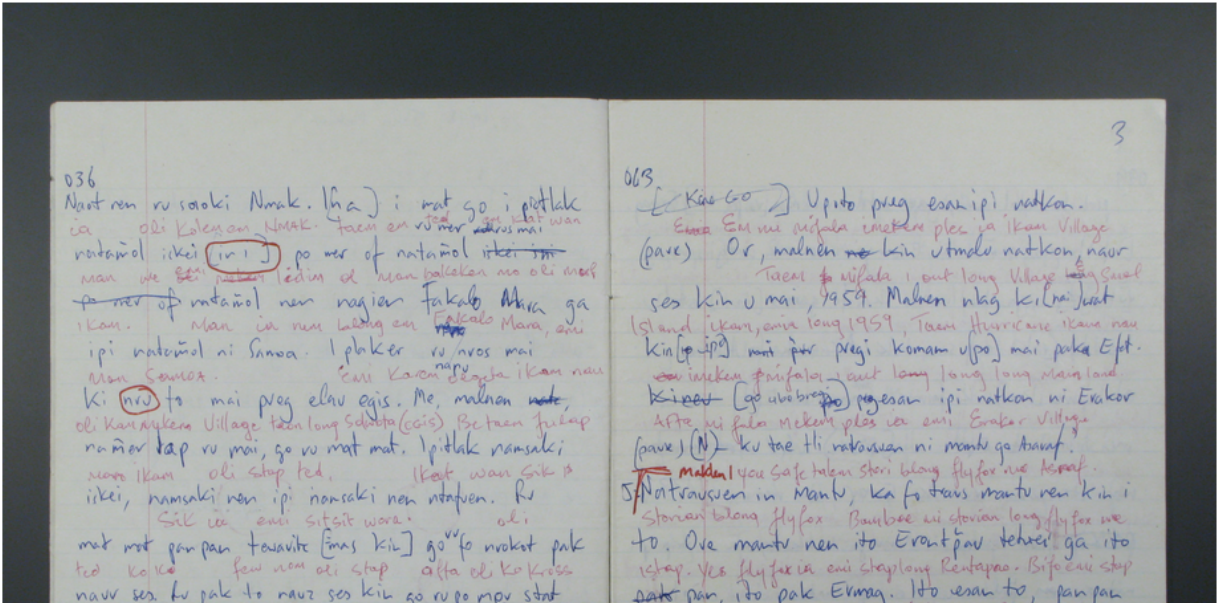 036
Naot nen ru sooki Nmak. [ha] i mat go i pitlak
ia oli kolem em Nmak. taem em ded em kat wan
natam̃ol iskei [in i] po mer of natam̃ol iskei
man we lidim ol man mo oli mas
po mer of natam̃ol nen nagien Fakalo Mara, ga
ikam. Man ia nem blong em Fakalo Mara, emi
ipi natam̃ol ni Samoa. I plaker ru nros mai
man Samoa. emi karem ikam nau
ki nru to mai preg elau egis. Me, malnen
oli kam mekem Village taem long solwota (egis) Be taem fulap
nam̃er lap ru mai, go ru mat mat. I pitlak namsaki
man ikam oli stap ded. Ikat wan sik
iskei, namsaki nen ipi namsaki nen ntafuen. Ru
Sik ia emi sitsit wora. oli
mat mat pan pan tewavite [mas kin] go fo nrokot pak
ded ko ko few nom oli stap afta oli ko kross
naur ses. Ru pak to naur ses kin go ru po mou stat
3
063
[Kin GO] Upoto preg esan ipi natkon.
Em mifala imekem ples ia ikam Village
(pause) Or, malnen kin utmalu natkon, naur
Taem mifala i aot long Village long smol
ses kin u mai, 1959. Malnen nlag ki [nai] wat
Island ikam, emia long 1959, Taem Hurricane ikam nau
kin [ip ipe] pregi komam u [po] mai pak Efat.
imekem mifala i aut long long long mainland
[go ubobreg] pregesan ipi natkon ni Erakor
Afta mifala mekem ples ia emi Erakor Village
(pause) (N) - ku tae tli natrauswen ni mantu go Asaraf.
maklen I you save talem stori blong flyfox mo Asaraf.
J - Natrauswen in mantu, ka fo traus mantu nen kin i
Storian blong flyfox Bambae mi storian long flyfox we
to. Ore mantu nen ito Erontp̃au tefrei ga ito
istap. Yes flyfox ia emi stap long Rentapao. Bifo emi stap
pan, ito pak Ermag. Ito esan to, pan pan